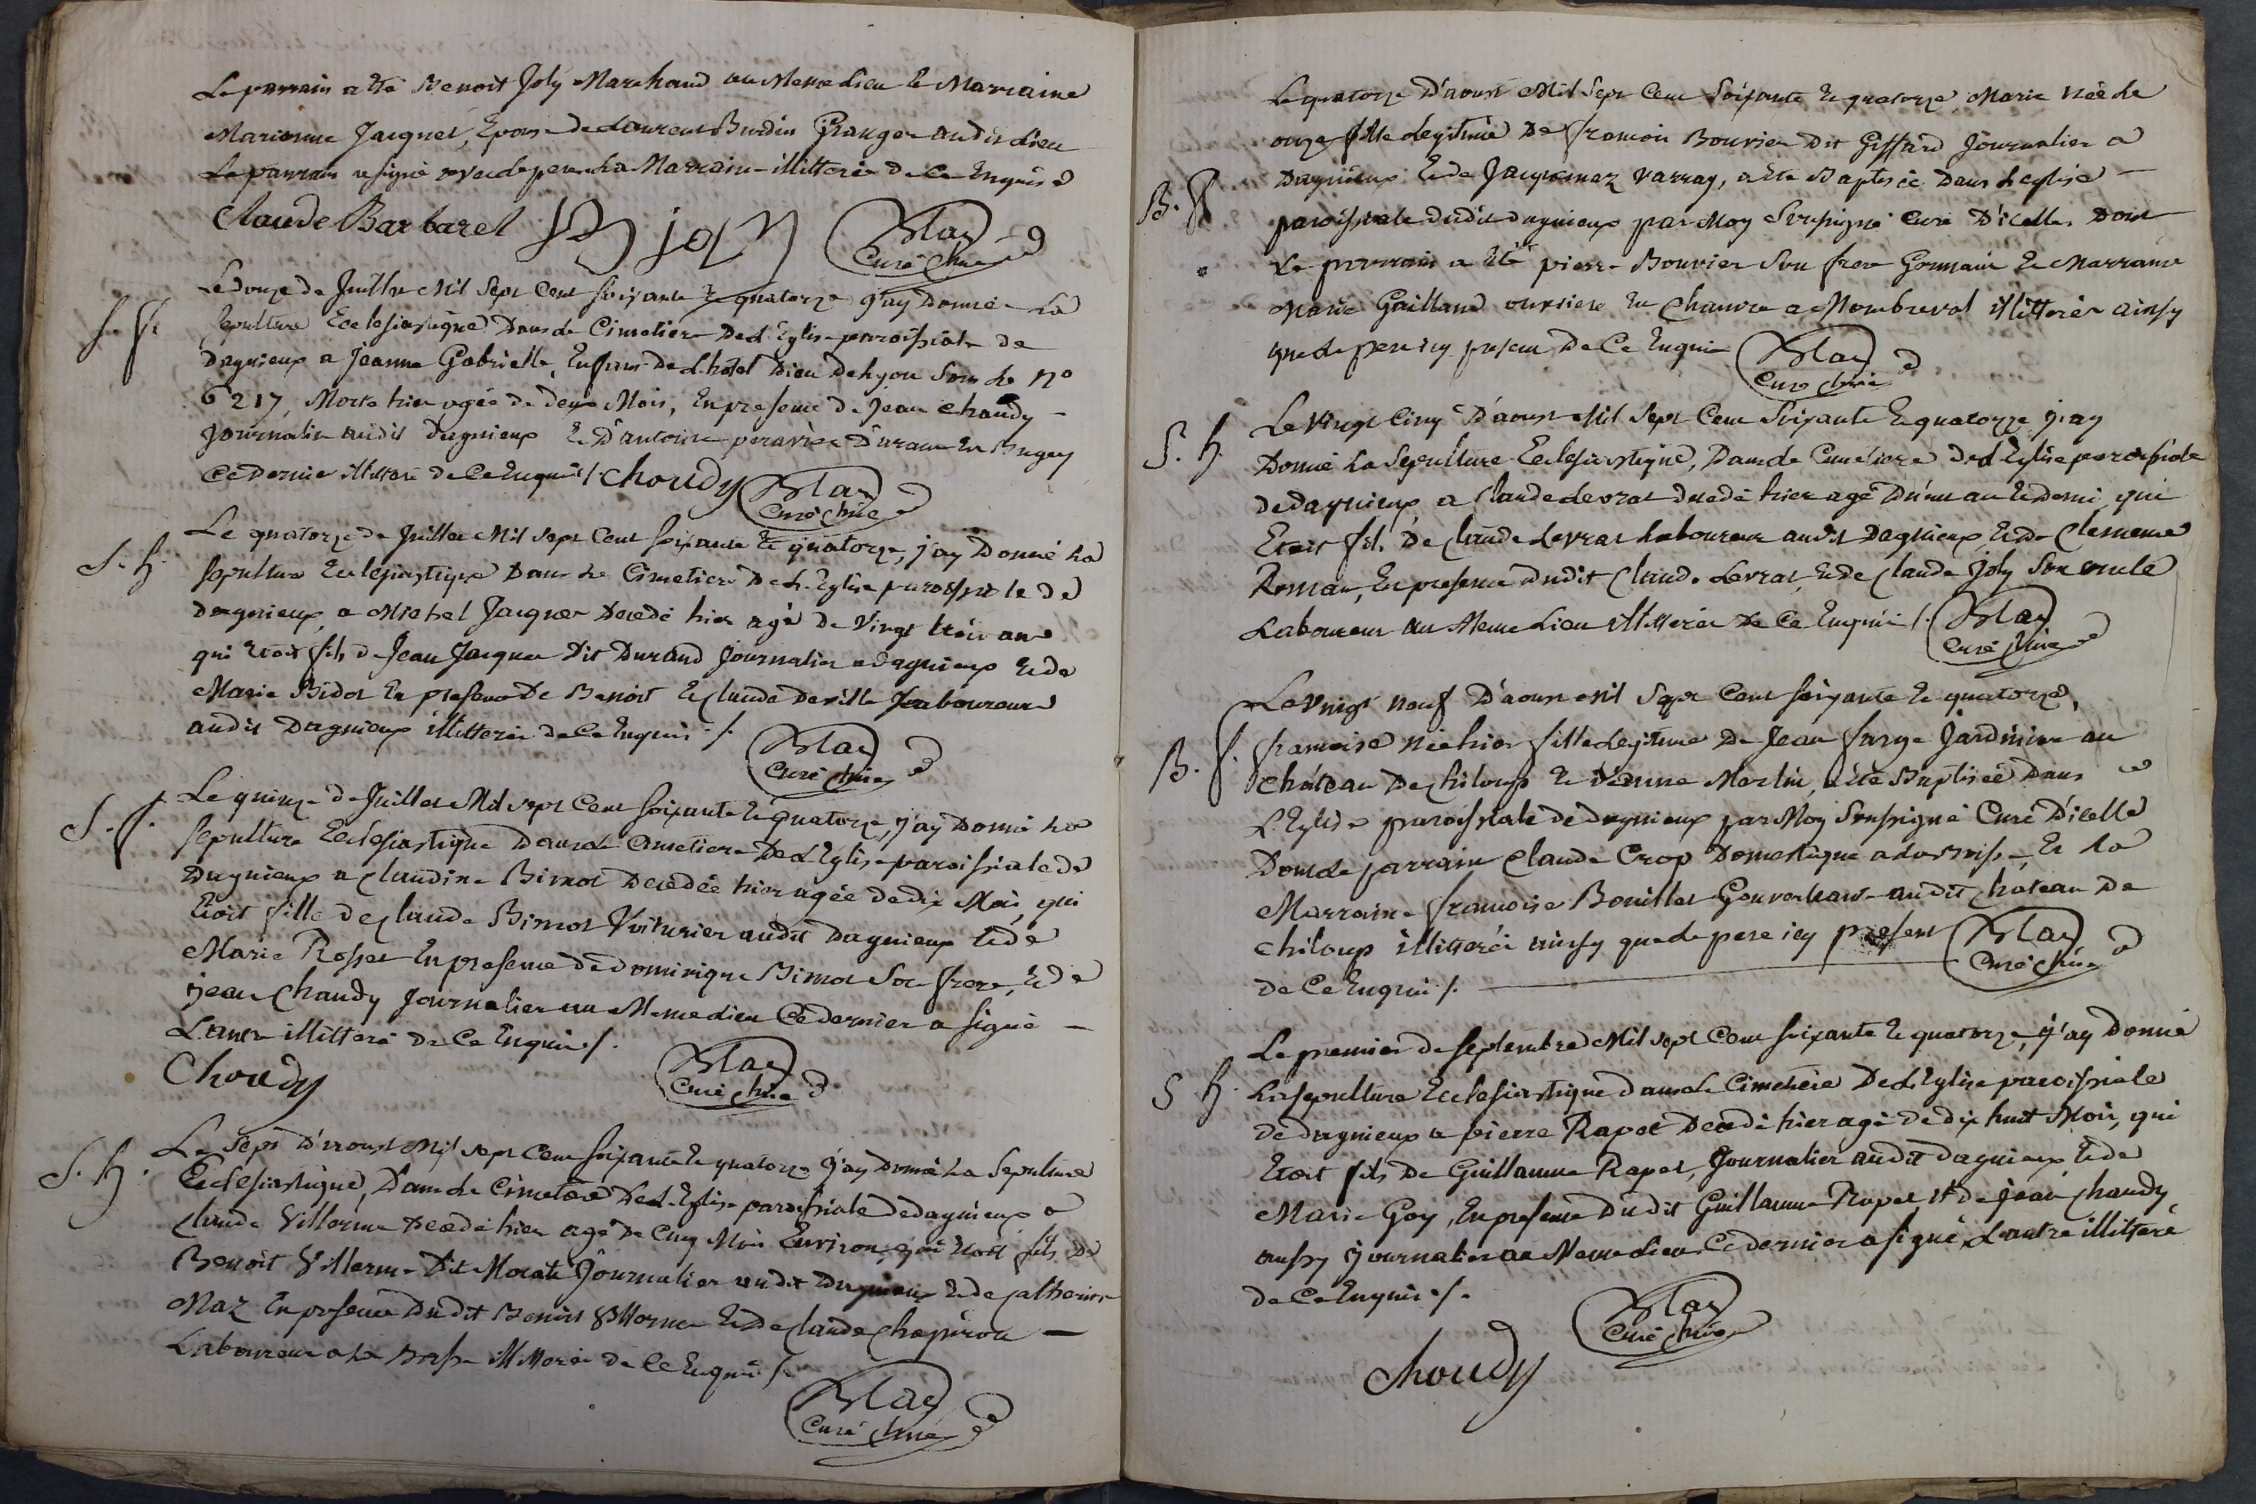 Le parrain a été Benoit Joly Marchand au Meme Lieu et Marraine
Marianne Jacquet, Epouse de Laurent Burdin Granger audit Lieu
Le parrain a signé avec le pere La Marraine illitterée de Ce Enquise
Claude Barbarel B joly Blanc
Curé
Le douze de Juillet Mil Sept Cent soixante et quatorze j'ay Donné La
S. f.
sepulture Ecclesiastique Dans le Cimetiere De L'Eglise paroissiale de
Dagnieux a Jeanne Gabrielle, Enfant De L'hotel Dieu De Lyon Sous le No
6217, Morte hier agée de deux Mois, En presence de Jean Chaudy
Journalier audit dagnieux Et D'antoine En Bugey
Ce Dernier illitteré de Ce Enquis /. Choudy
Curé
Le quatorze de Juillet Mil Sept Cent soixante Et quatorze, j'ay Donné La
S. h.
sepulture Ecclesiastique Dans Le Cimetiere De L'Eglise paroissiale de
dagnieux, a Michel Jacquet Decedé hier agé de Vingt trois ans
qui Etoit fils de Jean Jacquet Dit Durand Journalier a dagnieux Et de
Marie Bidot En presence De Benoit Et Claude Deville Laboureurs
audit Dagnieux illitterés de Ce Enquis /.
Curé
Le quinze de Juillet Mil sept Cent soixante Et quatorze, j'ay Donné La
S. f.
sepulture Ecclesiastique Dans Le Cimetiere De L'Eglise paroissiale de
Dagnieux a Claudine Bimot Decedée hier agée de dix Mois, qui
Etoit fille de Claude Bimot Voiturier audit Dagnieux Et de
Marie Rosset En presence de dominique Bimot Son frere, Et de
jean Chaudy Journalier au Meme Lieu Ce dernier a signé
L'autre illitteré De Ce Enquis /.
Choudy
Curé
Le Sept D'aoust Mil sept Cent soixante Et quatorze j'ay Donné La Sepulture
S. h.
Ecclesiastique, Dans Le Cimetiere De L'Eglise paroissiale de dagnieux a
Claude Villerme Decedé hier agé de Cinq Mois Environ, qui Etoit fils De
Benoit Villerme Dit Journalier audit Dagnieux Et de Catherine
Maz En presence Dudit Benoit Villerme Et De Claude Chapiron
Laboureur a La Boisse illitterés de Ce Enquis /.
Curé
Le quatorze D'aoust Mil Sept Cent Soixante Et quatorze, Marie née Le
onze fille Legitime De francois Bouvier Dit Giffard Journalier a
Dagnieux Et de Jacquemaz Varray, a Eté Baptisée Dans L'eglise
B. f.
paroissiale dudit dagnieux par Moy Soussigné Curé D'icelle. Dont
Le parrain a Eté pierre Bouvier Son frere Germain Et Marraine
Marie Gaillard ouvriere En Chanvre a Montluel illitterés ainsy
que le pere icy present De Ce Enquis
Curé
Le Vingt Cinq D'aoust Mil Sept Cent Soixante Et quatorze j'ay
S. h.
Donné La Sepulture Ecclesiastique, Dans le Cimetiere De L'Eglise paroissiale
de dagnieux, a Claude Levrat decedé hier agé D'un an Et Demi, qui
Etoit fils De Claude Levrat Laboureur audit Dagnieux Et de Clemence
Roman, En presence dudit Claude Levrat, Et de Claude Joly Son oncle
Laboureur au Meme Lieu illitterés De Ce Enquis /.
Curé
Le Vingt neuf D'aoust Mil Sept Cent soixante Et quatorze,
B. f.
francoise née hier fille Legitime De Jean farge Jardinier au
Château De Chiloup Et D'anne Merlin, a Eté Baptisée Dans
L'Eglise paroissiale de dagnieux par Moy Soussigné Curé D'icelle
Dont Le parrain Claude Crop Domestique a La Boisse, Et La
Marraine francoise Bouillet Gouvernante audit Château De
Chiloup illitterés ainsy que le pere icy present
de Ce Enquis /.
Curé
Le premier de septembre Mil sept Cent soixante Et quatorze, j'ay Donné
S h.
La sepulture Ecclesiastique dans Le Cimetiere De L'Eglise paroissiale
de dagnieux a pierre Rapet Decedé hier agé de dix huit Mois, qui
Etoit fils De Guillaume Rapet, Journalier audit dagnieux Et de
Marie Goy, En presence Dudit Guillaume Rapet Et de jean Chaudy
aussy journalier au Meme Lieu Ce dernier a signé L'autre illitteré
de Ce Enquis /.
Curé
Choudy